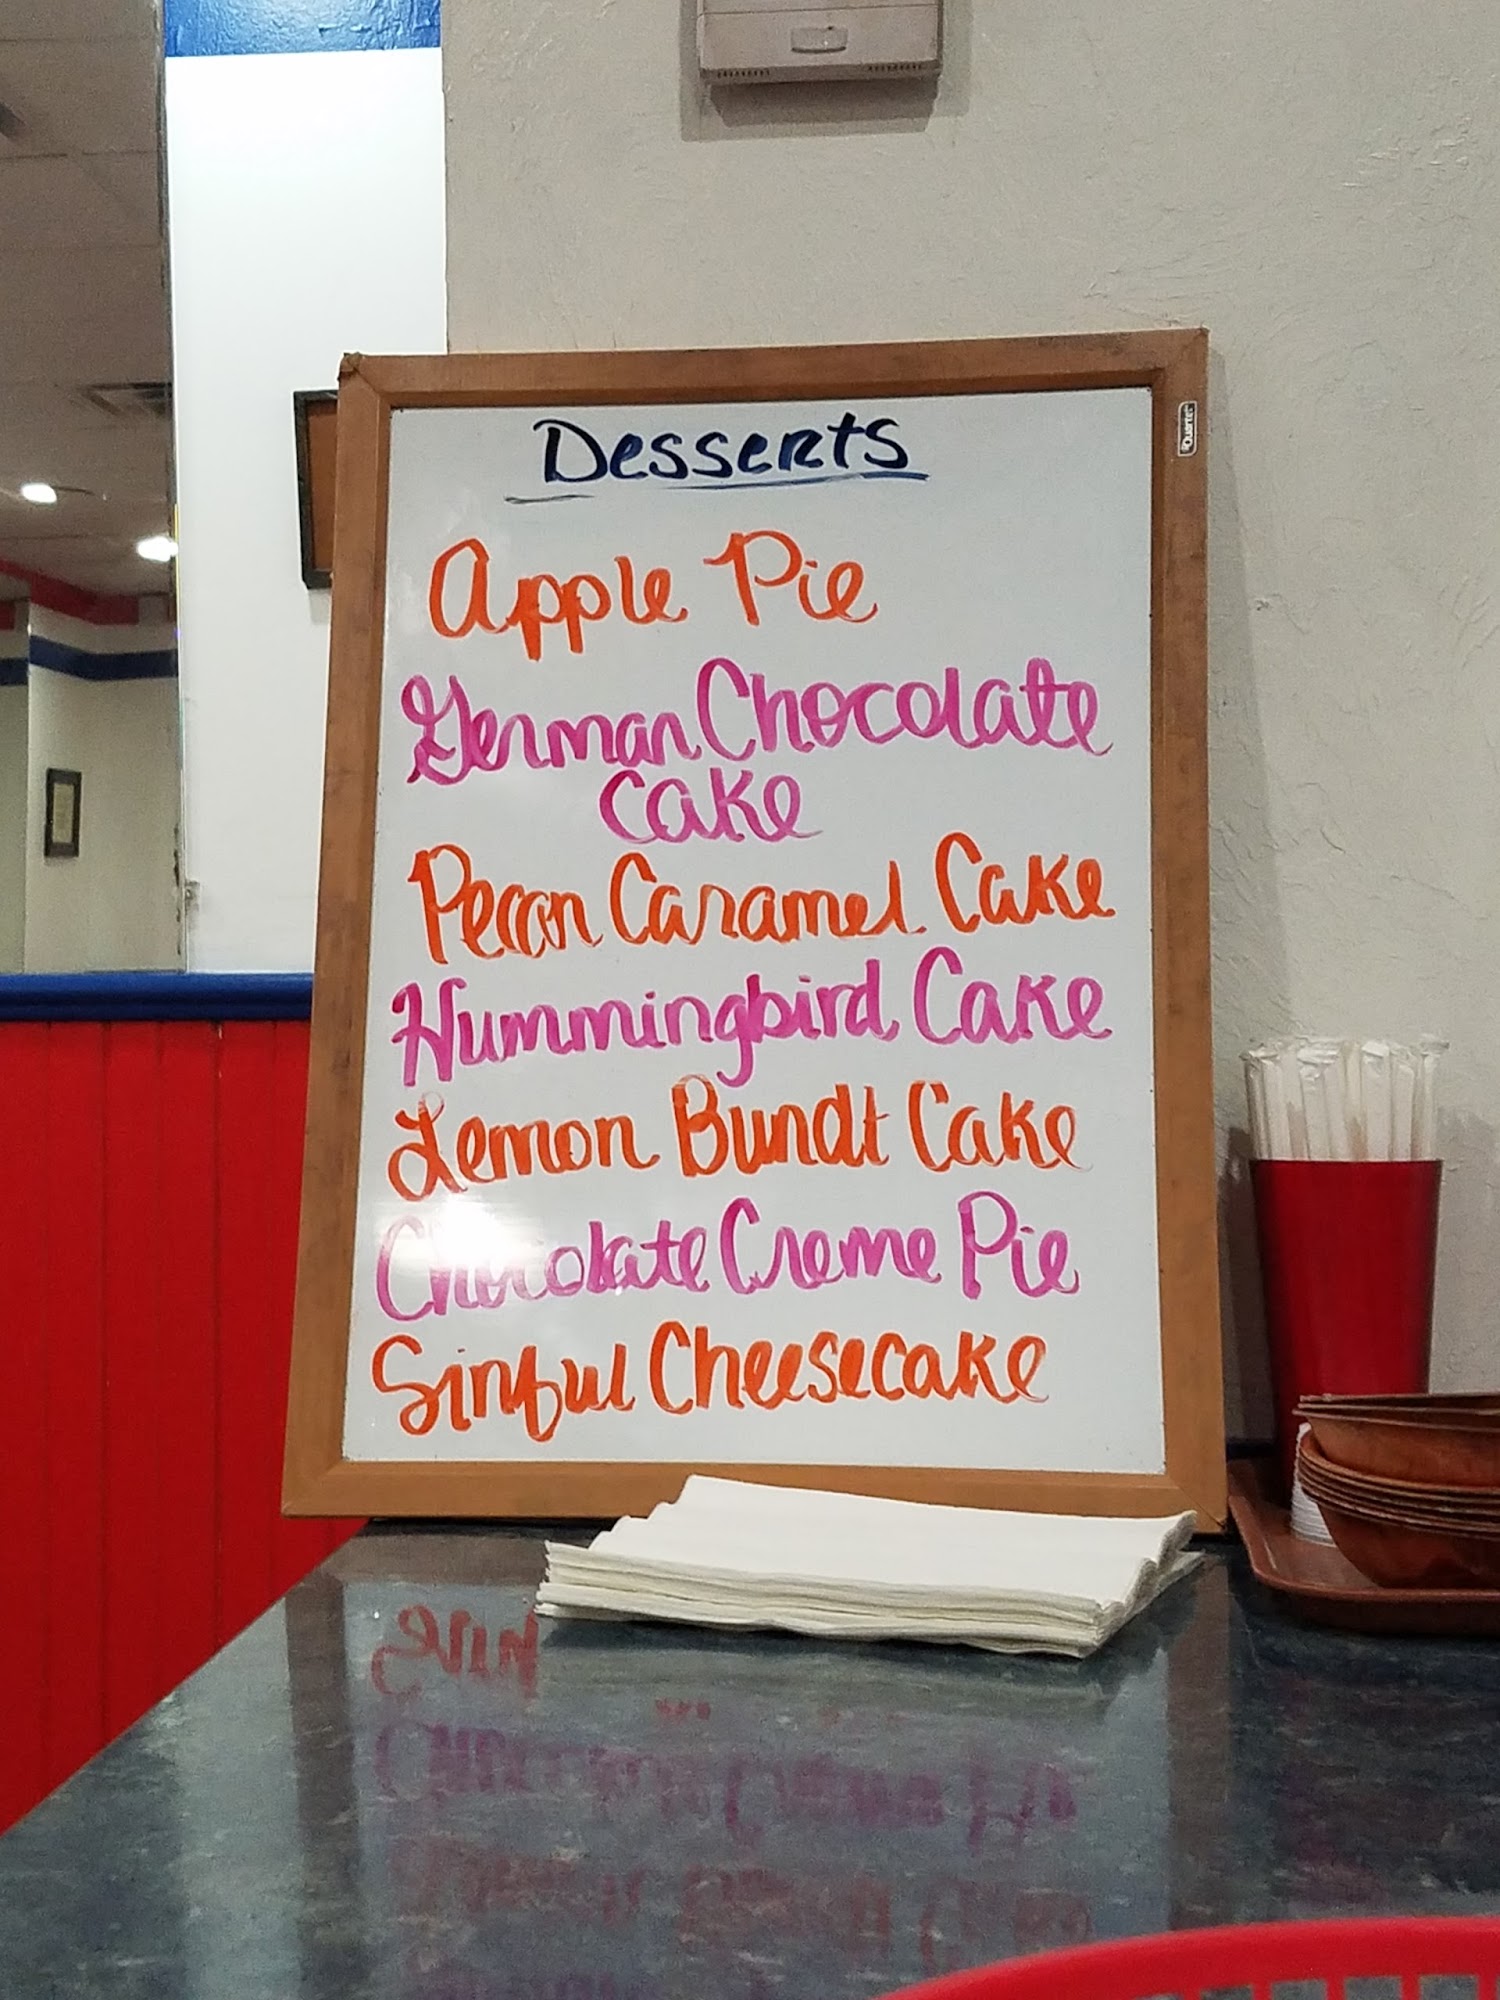 Desserts
Quartet
Apple Pie
German Chocolate
Cake
Pecan Caramel Cake
Hummingbird Cake
Lemon Bundt Cake
Chocolate Creme Pie
Sinful Cheesecake